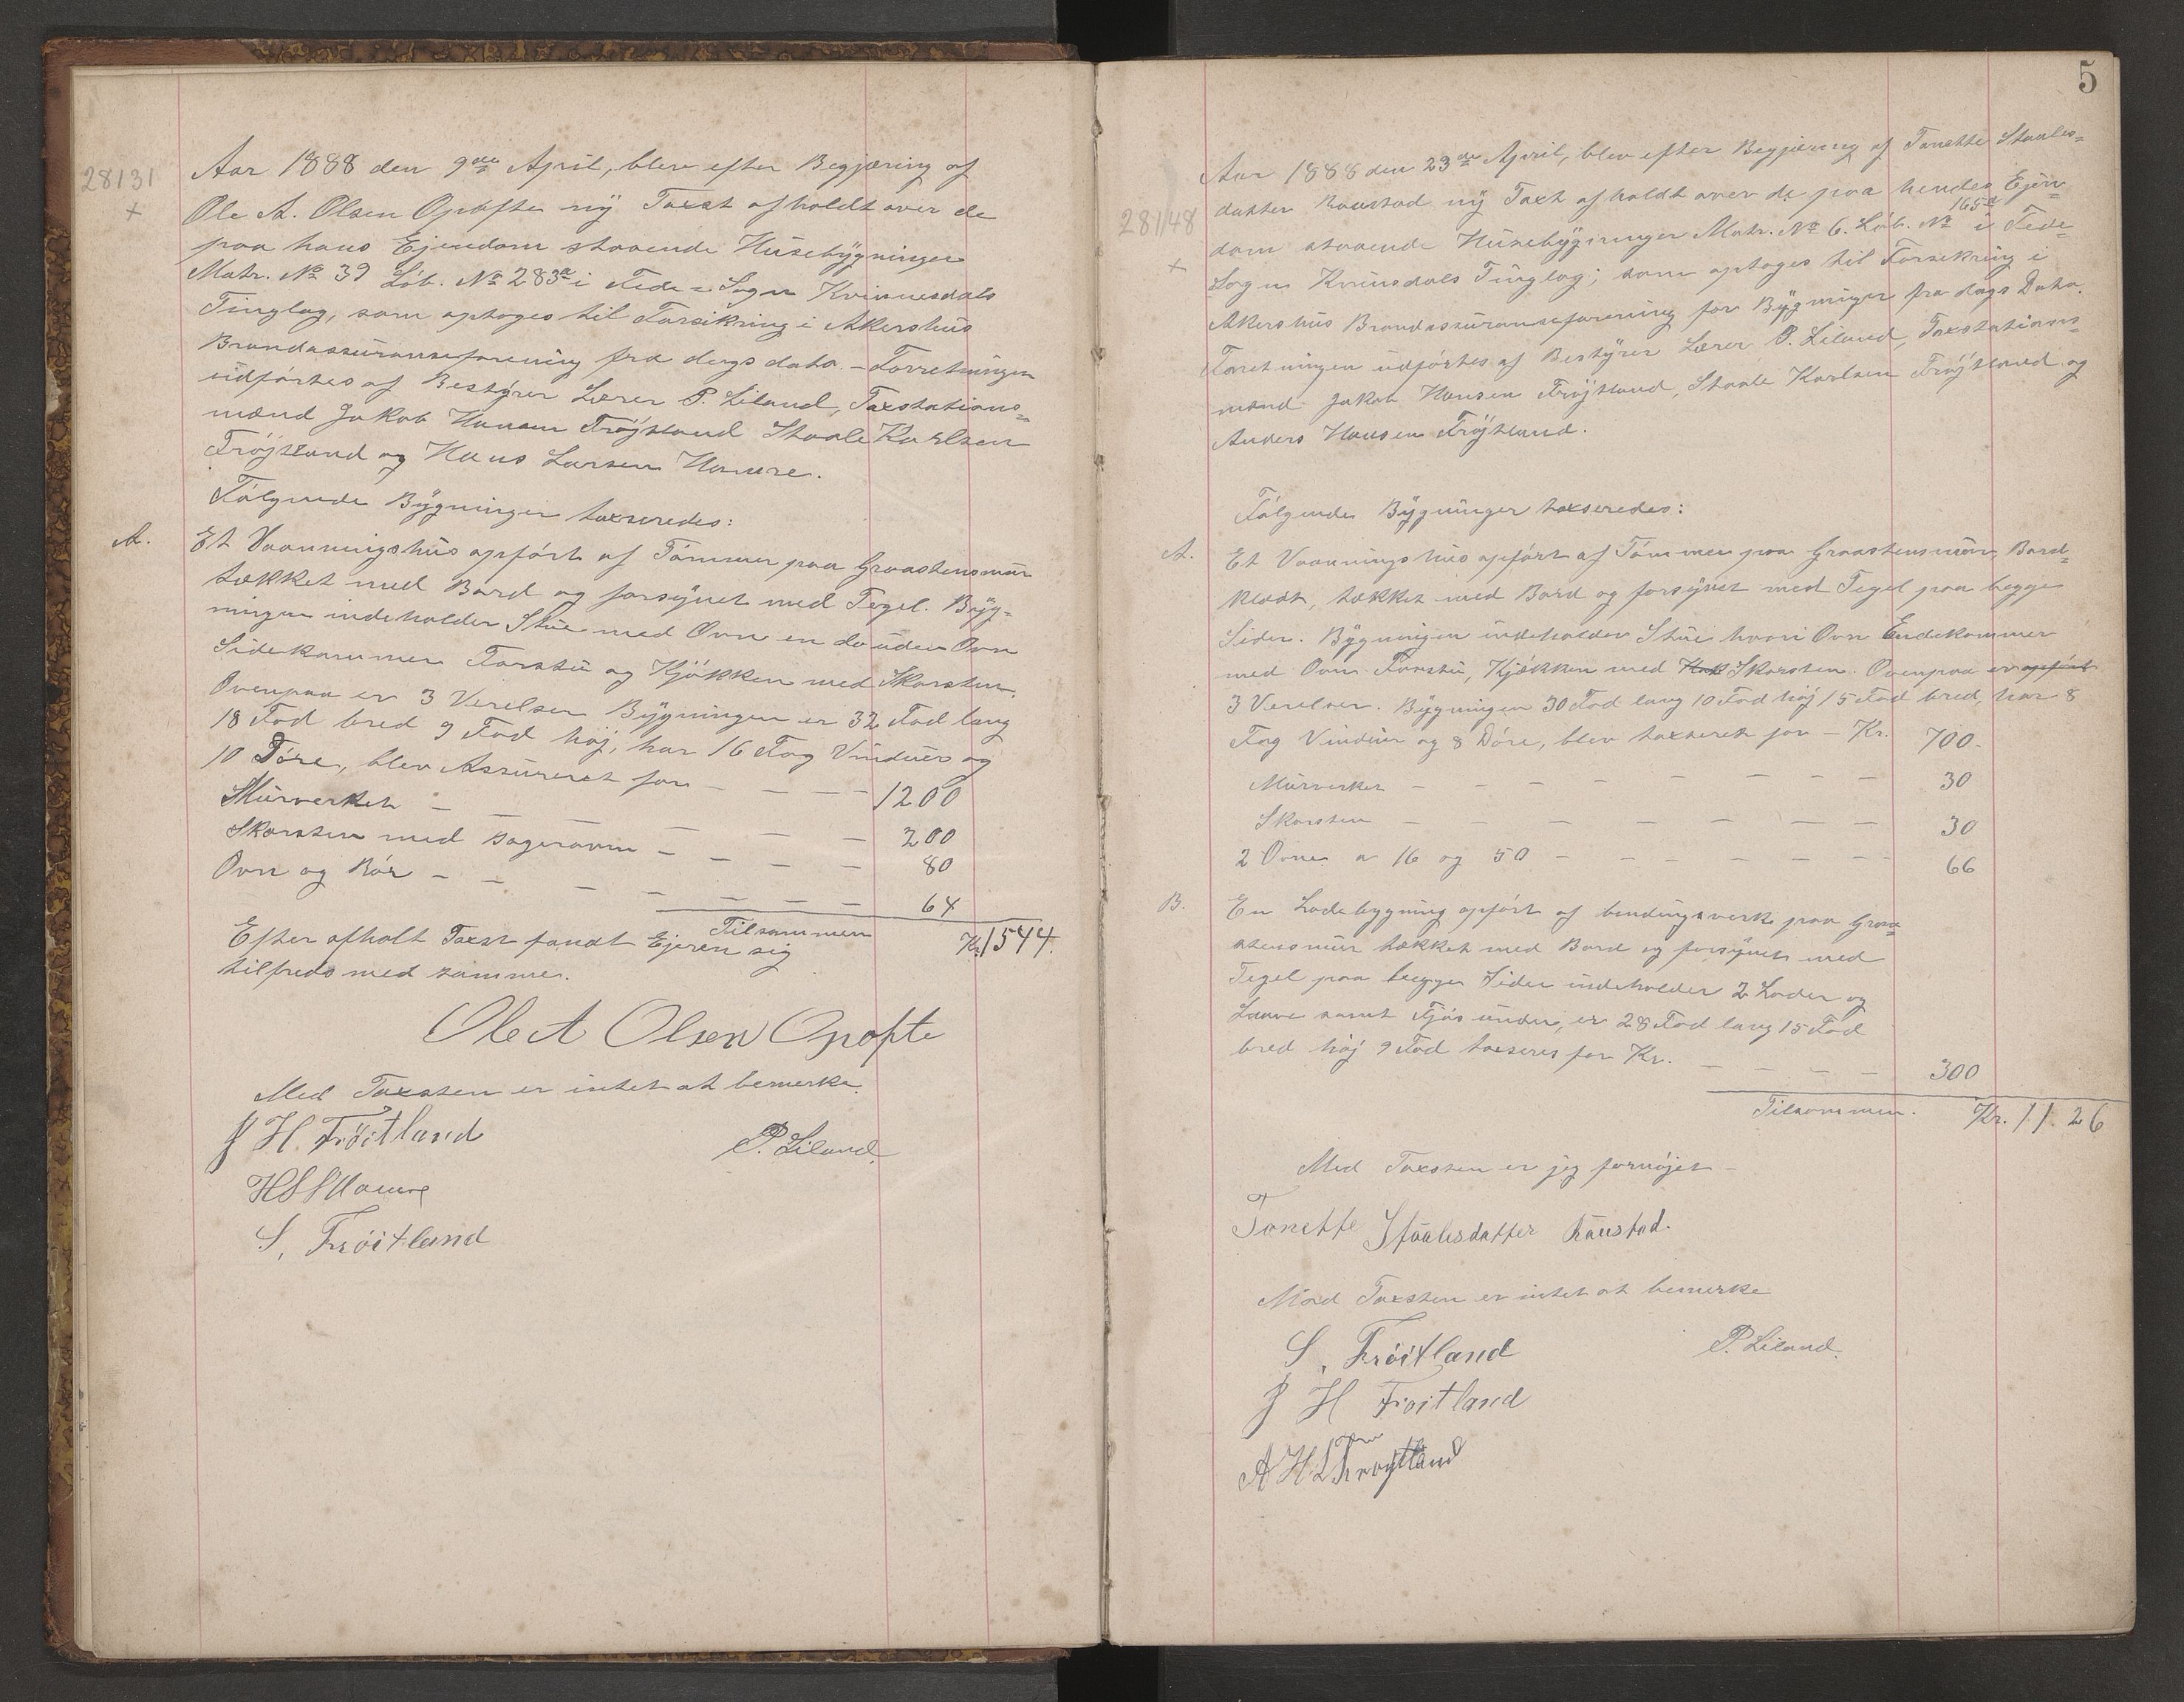 28131
+
Aar 1888 den 9de April, blev efter Begjæring af
Ole A. Olsen Opofte ny Taxst afholdt over de
paa hans Ejendom staaende Husebygninger
Matr. No 39 Löb. No 283a i Fede = Sogn Kvinnesdals
Tinglag, som optoges til Forsikring i Akershus
Brandassuranseforening fra dags dato. – Forretningen
udførtes af Bestyrer Lærer P. Liland, Taxstations=
mænd Jakob Hansen Fröjtland Staale Karlsen
Fröjtland og Hans Larsen Hamre.
Fölgende Bygninger taxseredes:
A.
Et Vaaningshus opfört af Tömmer paa Graastensmur
tækket med Bord og forsynet med Tegel. Byg=
ningen indeholder Stue med Ovn en do uden Ovn
Sidekammer Forstu og Kjökken med Skorsten.
Ovenpaa er 3 Verelser Bygningen er 32 Fod lang
18 Fod bred 9 Fod höj, har 16 Fag Vinduer og
10 Döre, blev Assureret for — — — — 1200
Murverket — — — — — 200
Skorsten med Bagerovn — — — — 80
Ovn og Rör — — — — — — — 64
Tilsammen Kr. 1544.
Efter afholt Taxst fandt Ejeren sig
tilfreds med samme.
Ole A Olsen Opofte
Med Taxsten er intet at bemerke.
J H. Fröitland
P. Liland.
H L Hamre
S, Fröitland
5
281/48
+
Aar 1888 den 23de April, blev efter Begjæring af Tanette Staales=
datter Raustad ny Taxt afholdt over de paa hendes Ejen=
dom staaende Husebygninger Matr. No 6. Löb. No 165a i Fede=
Sogn Kvinsdals Tinglag; som optoges til Forsikring i
Akershus Brandassuranseforening for Bygninger fra dags Dato.
Foretningen udförtes af Bestyrer Lærer P. Liland, Taxstations=
mænd Jakob Hansen Fröjtland, Staale Karlsen Fröjtland og
Anders Hansen Fröjtland.
Fölgende Bygninger taxseredes:
A.
Et Vaanings hus opfört af Tömmer paa Graastensmur, Bord=
klædt, tækket med Bord og forsynet med Tegel paa begge
Sider. Bygningen indeholder Stue hvori Ovn Endekammer
med Ovn Forstu, Kjökken med Skorsten. Ovenpaa er opfört
3 Verelser. Bygningen 30 Fod lang 10 Fod höj 15 Fod bred, har 8
Fag Vinduer og 8 Döre, blev taxseret for — Kr. 700.
Murverket — — — — — — — 30
Skorsten — — — — — — — 30
2 Ovner a 16 og 50 — — — — — — 66
B.
En Ladebygning opfört af bendingsverk paa Graa=
stensmur tækket med Bord og forsynet med
Tegel paa begge Sider indeholder 2 Lader og
Laave samt Fjös under, er 28 Fod lang 15 Fod
bred höj 9 Fod taxseres for Kr. — — — — 300
Tilsammen. Kr. 11.26
Med Taxsten er jeg fornöjet —
Tanette Staalesdatter Raustad.
Med Taxsten er intet at bemerke
S, Fröitland
P. Liland.
J H Fröitland
A H Fröytland